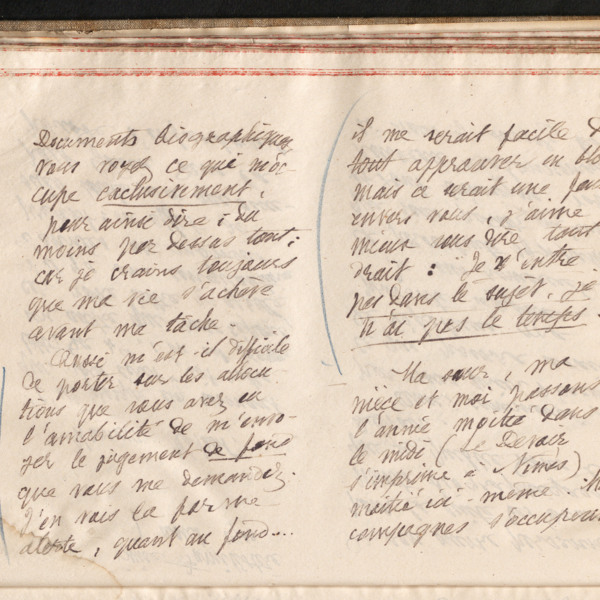 Documents biographiques
vous voyez ce qui m'oc-
cupe exclusivement,
pour ainsi dire ; du
moins par dessus tout ;
car je crains toujours
que ma vie s'achève
avant ma tâche.
Aussi m'est-il difficile
de porter sur les allocu
tions que vous avez eu
l'amabilité de m'envo-
yer le jugement de fond
que vous me demandez.
J'en vois la forme
alerte, quant au fond...
il me serait facile de
tout approuver en blo
mais ce serait une
envers vous, j'aime
mieux vous dire tout
droit : Je n'entre
pas dans le sujet. je
n'ai pas le temps.
Ma sœur, ma
nièce et moi passons
l'année moitié dans
le midi (Le Devoir
s'imprime à Nîmes)
moitié ici-même.
compagnes s'occupent